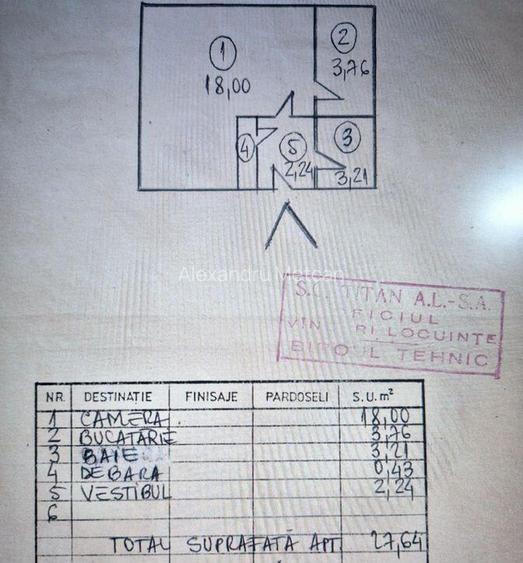 1
18,00
2
3,76
3
3,21
4
5
2,24
Alexandru
S.C. TITAN A.L.-S.A.
FICIUL
VIN RI LOCUINTE
BIROUL TEHNIC
NR. DESTINATIE FINISAJE PARDOSELI S.U. m²
1 CAMERA 18,00
2 BUCATARIE 3,76
3 BAIE 3,21
4 DEBARA 0,43
5 VESTIBUL 2,24
6
TOTAL SUPRAFATĂ APT. 27,64